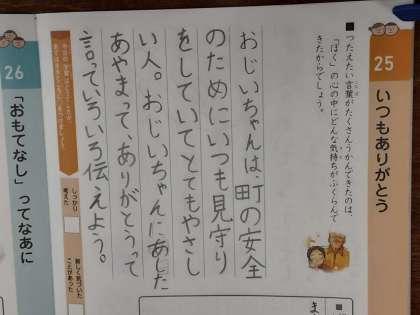 25
いつもありがとう
■つたえたい言葉がたくさんうかんできたのは、
「ぼく」の心の中にどんな気持ちがふくらんで
きたからでしょう。
おじいちゃんは、町の安全
のためにいつも見守り
をしていてとてもやさし
い人。おじいちゃんにあした
あやまって、ありがとうって
言っていろいろ伝えよう。
しっかり
考えた
新しく気づいた
ことがあった
26
「おもてなし」ってなあに